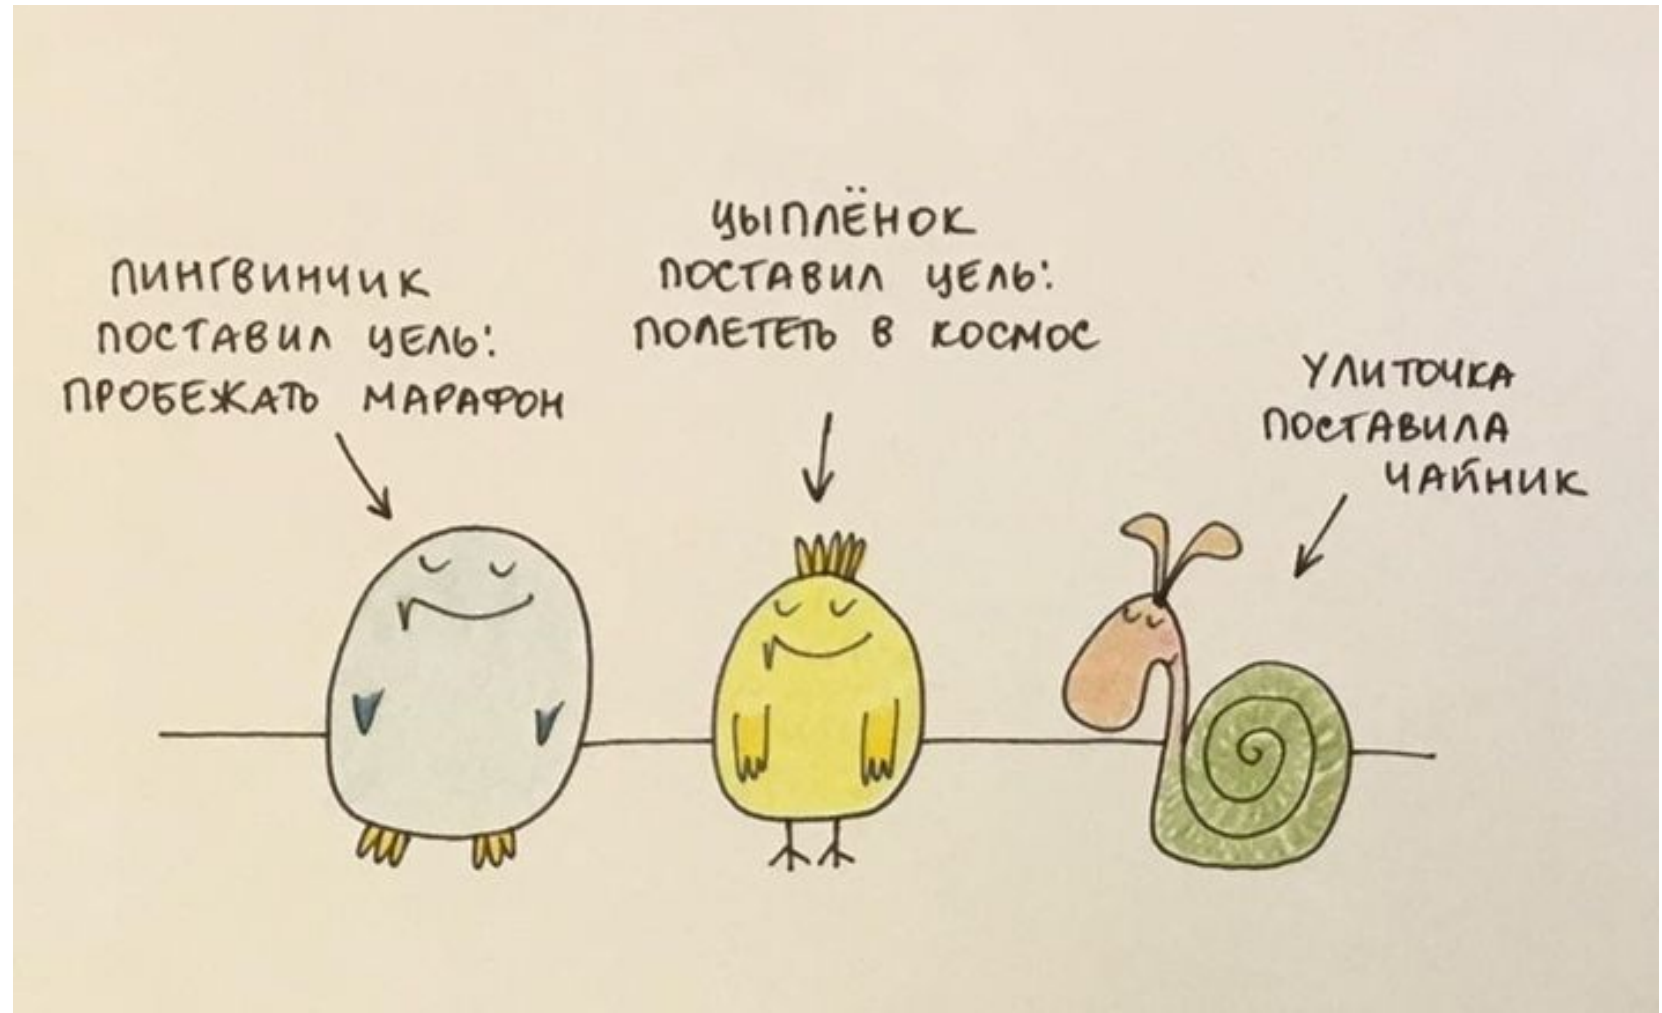 ПИНГВИНЧИК
ПОСТАВИЛ ЦЕЛЬ:
ПРОБЕЖАТЬ МАРАФОН
ЦЫПЛЁНОК
ПОСТАВИЛ ЦЕЛЬ:
ПОЛЕТЕТЬ В КОСМОС
УЛИТОЧКА
ПОСТАВИЛА
ЧАЙНИК